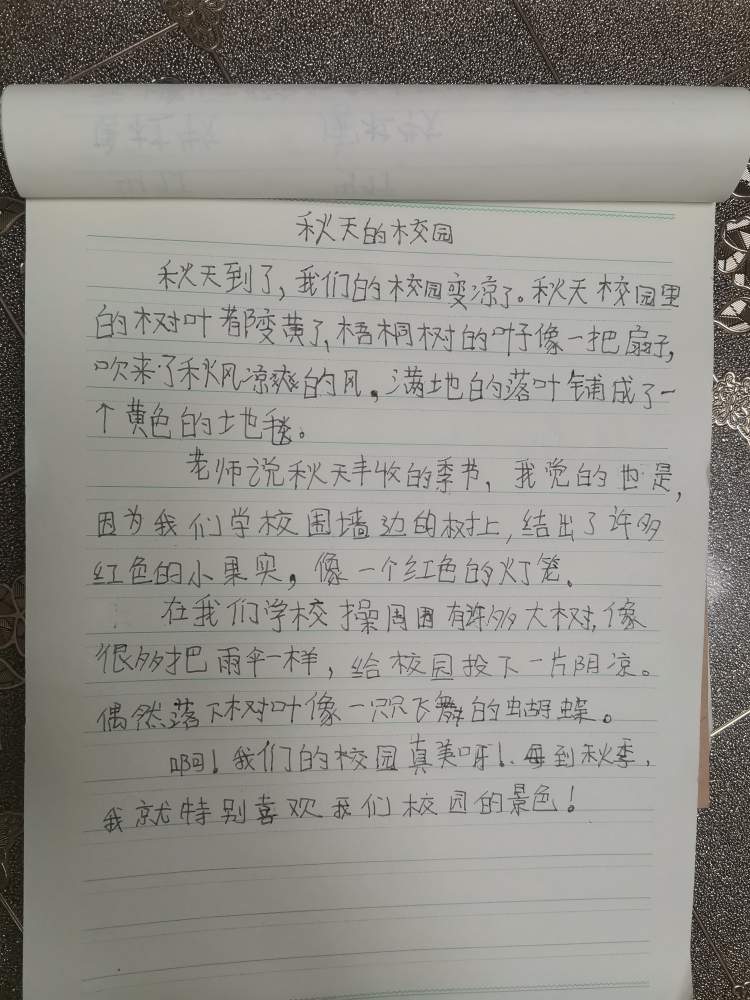 秋天的校园
秋天到了，我们的校园变凉了。秋天校园里
的树叶都变黄了，梧桐树的叶子像一把扇子，
吹来了秋风凉爽的风。满地的落叶铺成了一
个黄色的土地毯。
老师说秋天丰收的季节，我觉的也是，
因为我们学校围墙边的树上，结出了许多
红色的小果实，像一个红色的灯笼。
在我们学校操周围有许多大树，像
很多把雨伞一样，给校园投下一片阴凉。
偶然落下树叶像一只只飞舞的蝴蝶。
啊！我们的校园真美呀！每到秋季，
我就特别喜欢我们校园的景色！